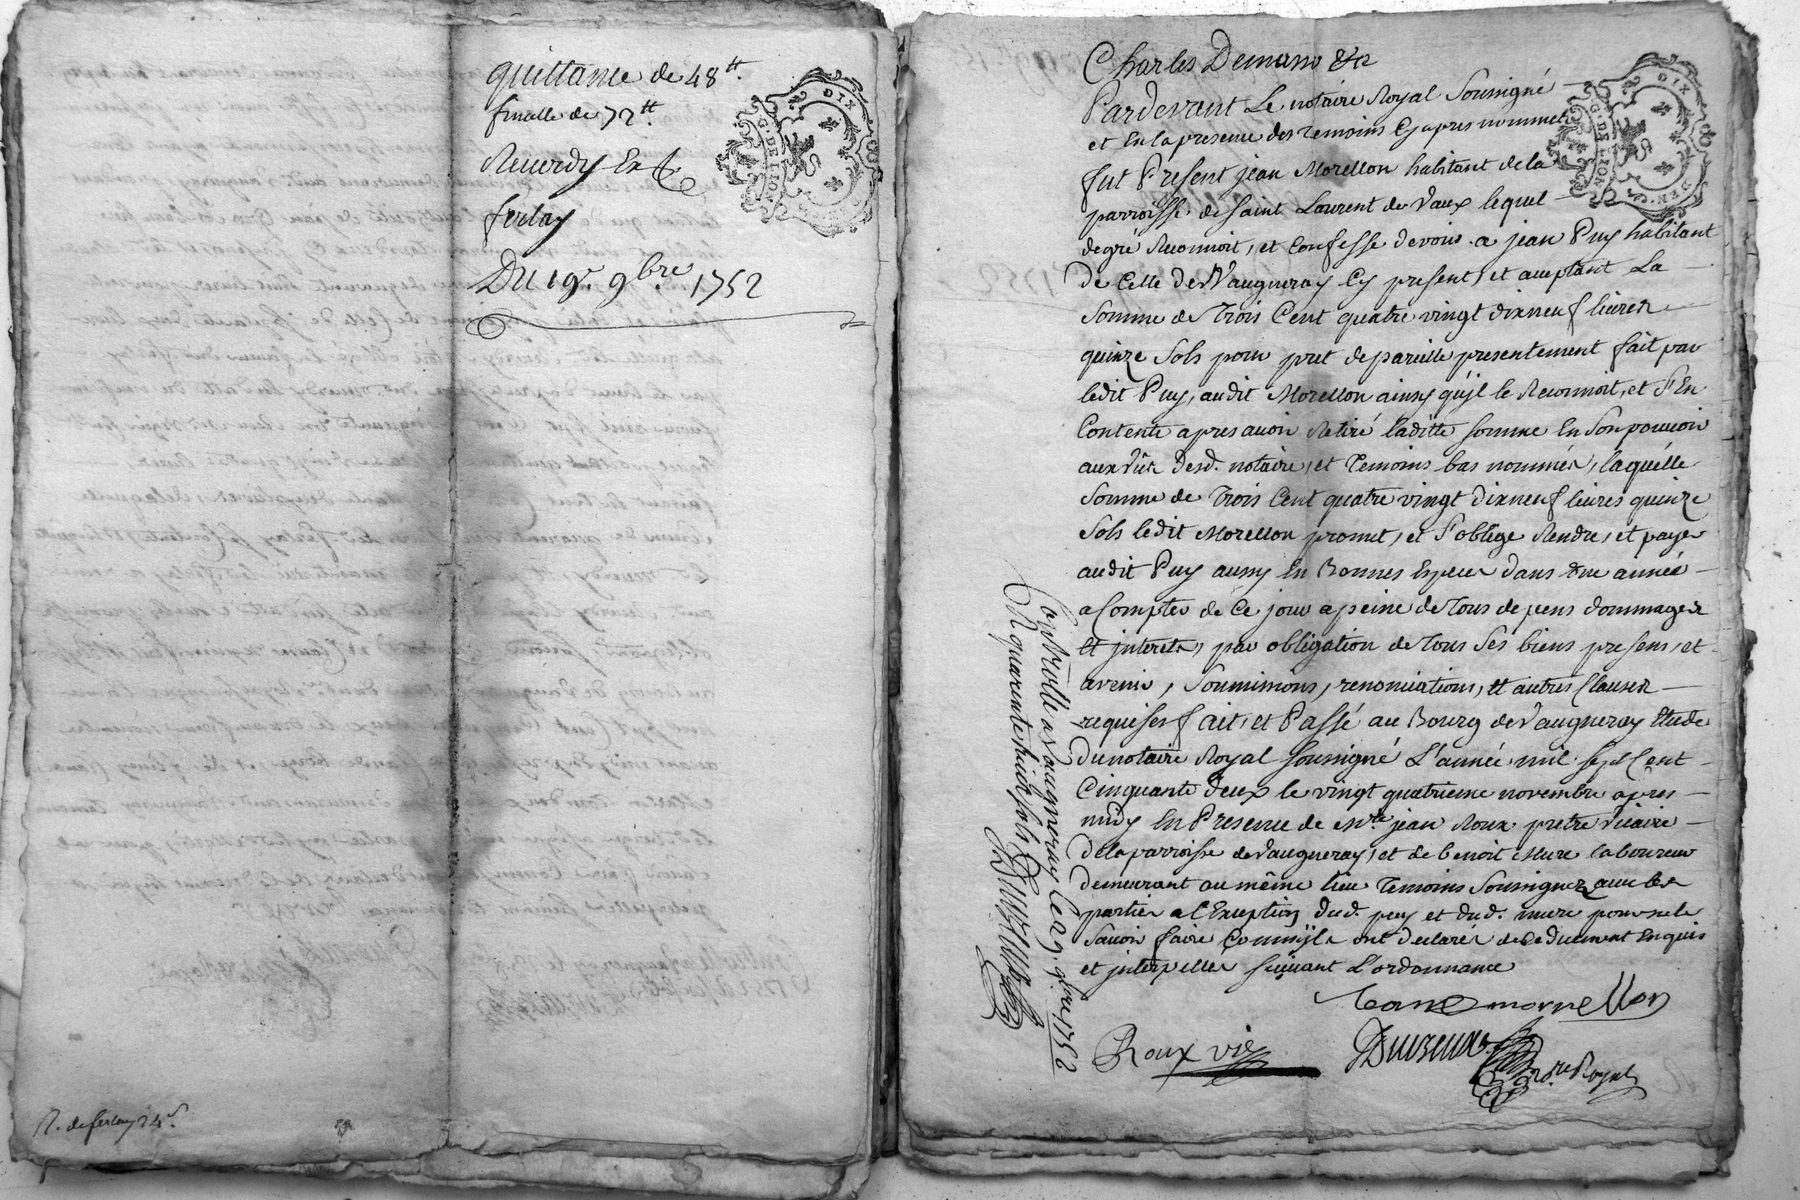 quittance de 48 ₶
finalle de 72 ₶
Reverdy
ferlay
Du 19e 9bre 1752
DIX
G. DE LION
R. de ferlay 24 s
Charles Demasso &a
Pardevant Le notaire Royal Soussigné
et En la presence des temoins Cy apres nommes
fut Present jean Morellon habitant de la
parroisse de Saint Laurent de Vaux lequel
de gré Reconnoit, et Confesse devoir a jean Puy habitant
de Celle de Vaugneray Cy present, et aceptant La
Somme de Trois Cent quatre vingt dixneuf livres
quinze Sols pour pret de pareille presentement fait par
ledit Puy, audit Morellon ainsy qu'jl le Reconnoit, et S'En
Contente apres avoir Retiré laditte somme En Son pouvoir
aux vûes desd. notaire, et Temoins bas nommés, laquelle
Somme de Trois Cent quatre vingt Dixneuf livres quinze
Sols ledit Morellon promet, et S'oblige Rendre, et payer
audit Puy aussy En Bonnes Especes dans une année
a Compter de Ce jour a peine de Tous depens dommages
Et jnterets, par obligation de Tous Ses biens presens, et
avenir, Soumissions, renonciations, Et autres Clauses
requises fait, et Passé au Bourg de Vaugneray Etude
Du notaire Royal Soussigné L'année mil sept Cent
Cinquante deux le vingt quatrieme novembre apres
midy En Presence de Mre jean Roux pretre vicaire
De la parroisse de Vaugneray, et de benoit Mure laboureur
demeurant au même lieu Temoins Soussignez avec les
parties a l'Exception dud. puy et dud. mure pour ne le
Savoir faire Comm'jls ont declarés de Ce duement Enquis
et jnterpellés suivant L'ordonnance
Controllé a Vaugneray le 29. 9bre 1752
R quarente huit sols
morellon
Roux vic
nore Royal
DIX
DEN
G. DE LION